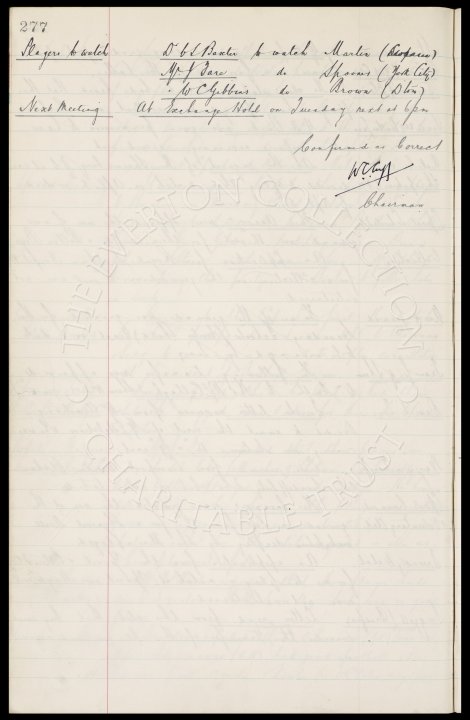 277
Players to watch Dr C.S. Baxter to watch Martin
Mr J. Fare do Spooner (York City)
" W C Gibbins do Brown (Dton)
Next Meeting At Exchange Hotel on Tuesday next at 6pm
Confirmed as Correct
W C Cuff
Chairman
THE EVERTON COLLECTION
CHARITABLE TRUST